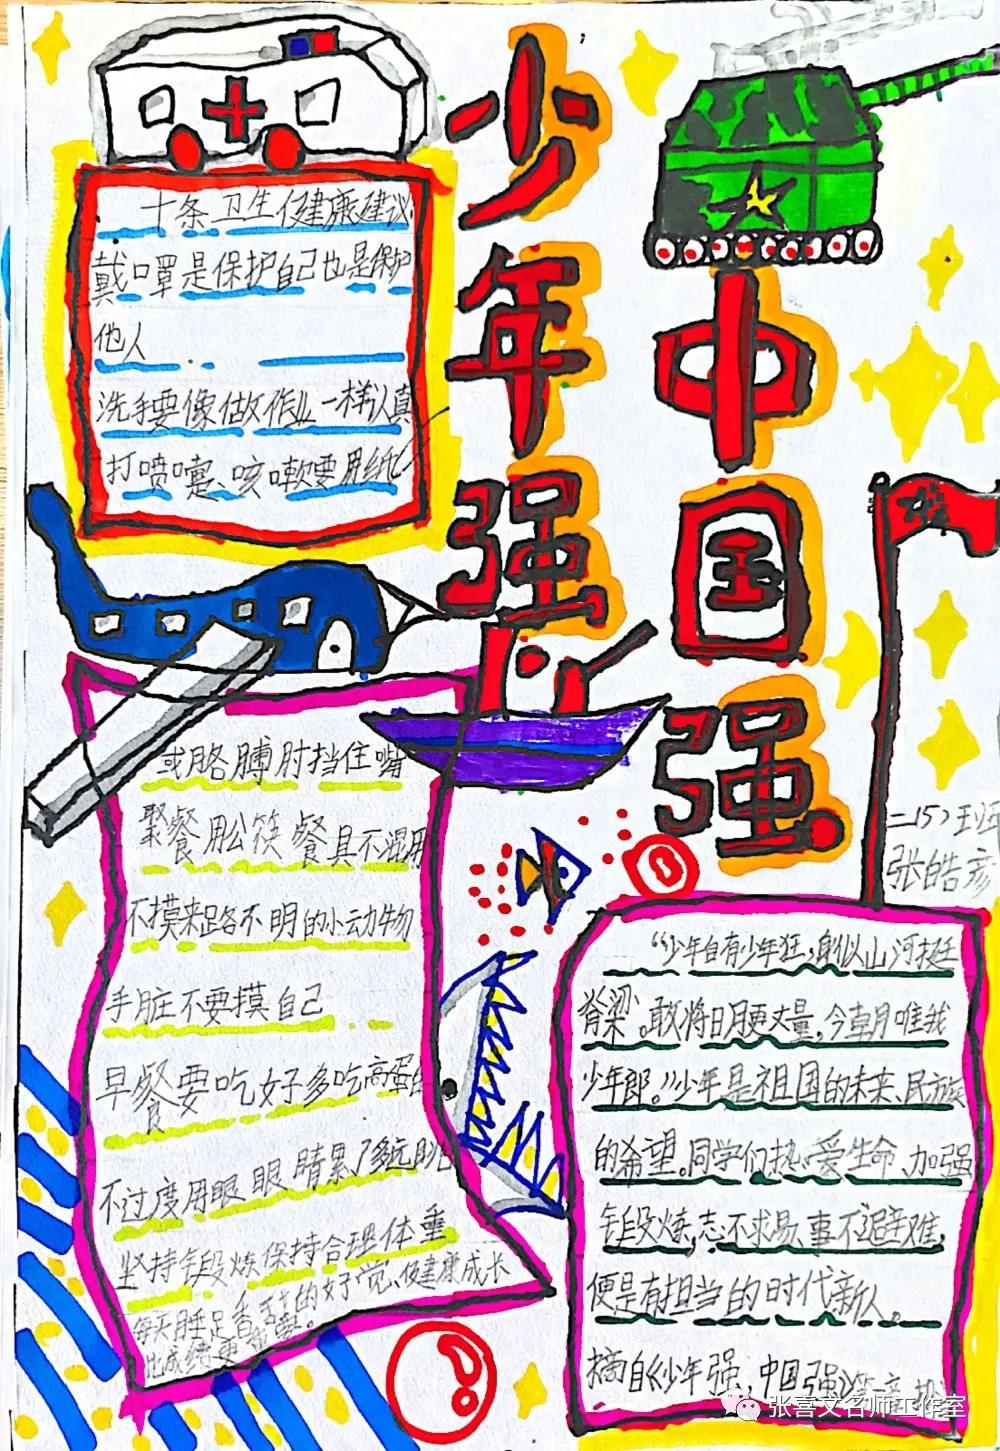 少年强
中国强
十条卫生健康建议
戴口罩是保护自己也是保护
他人
洗手要像做作业一样认真
打喷嚏、咳嗽要用纸
或胳膊肘挡住嘴
聚餐用公筷餐具不混用
不摸来路不明的小动物
手脏不要摸自己
早餐要吃好多吃高蛋白
不过度用眼眼睛累了多远眺
坚持锻炼保持合理体重
每天睡足香香的好觉、健康成长
比成绩更重要。
二(5)班
张皓彦
“少年自有少年狂，身似山河挺
脊梁。敢将日月更丈量，今朝唯我
少年郎。”少年是祖国的未来、民族
的希望。同学们热爱生命、加强
锻炼，志不求易、事不避难，
便是有担当的时代新人。
摘自《少年强，中国强》
张喜文名师工作室